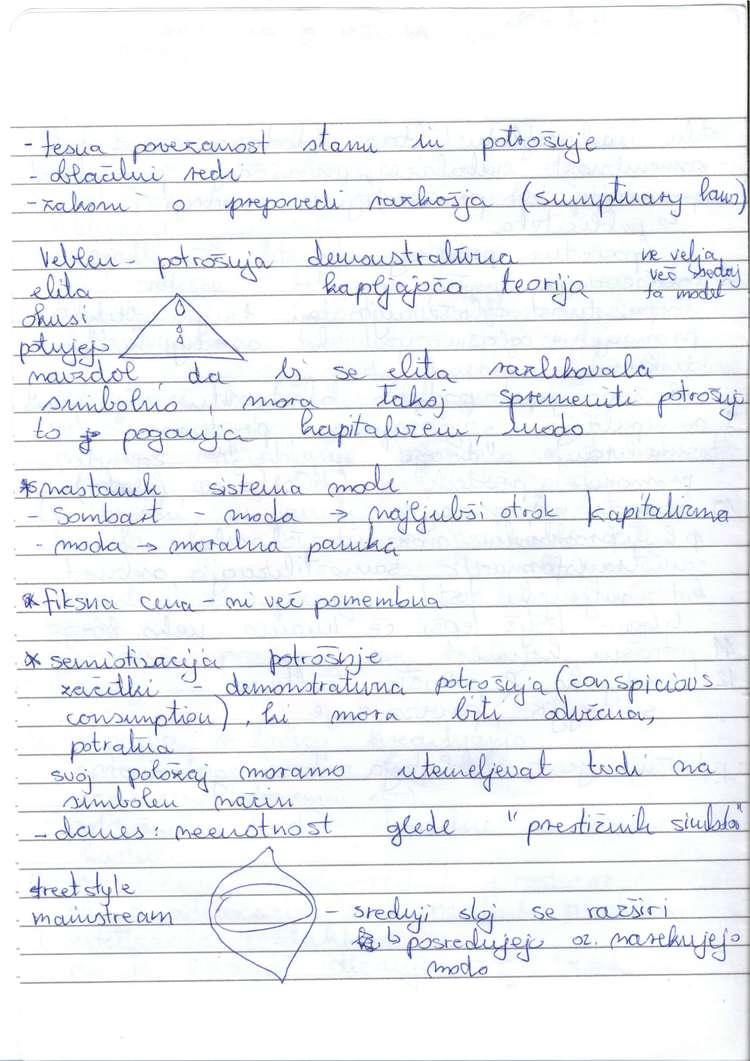 - tesna povezanost stanu in potrošnje
- oblačilni redi
- zakoni o prepovedi razkošja (sumptuary laws)
Veblen - potrošnja demonstrativna
ne velja
več sedaj
ta model
elita kapljajoča teorija
okusi
potujejo
navzdol, da bi se elita razlikovala
simbolno, mora takoj spremeniti potrošnj
to poganja kapitalizem, modo
* nastanek sistema mode
- Sombart - moda → najljubši otrok kapitalizma
- moda → moralna panika
* fiksna cena - ni več pomembna
* semiotizacija potrošnje
začetki - demonstrativna potrošnja (conspicious
consumption), ki mora biti odvečna,
potratna
svoj položaj moramo utemeljevat tudi na
simbolen način
- danes: neenotnost glede "prestižnih simbolov"
street style
mainstream - srednji sloj se razširi
↳ posredujejo oz. narekujejo
modo